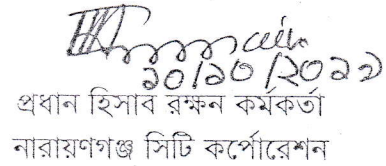 ২০/১০/২০২২
প্রধান হিসাব রক্ষন কর্মকর্তা
নারায়ণগঞ্জ সিটি কর্পোরেশন